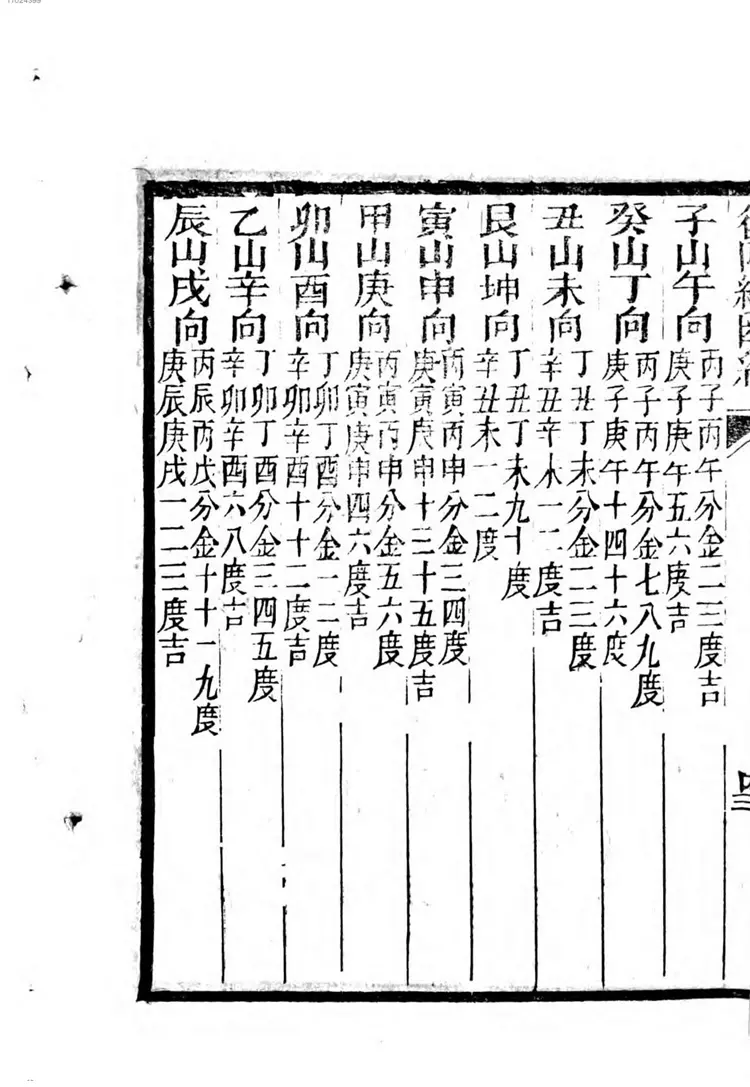 子山午向
丙子丙午分金二三度吉
庚子庚午五六度吉
癸山丁向
丙子丙午分金七八九度
庚子庚午十四十六度
丑山未向
丁丑丁未分金二三度
辛丑辛未一二度吉
艮山坤向
丁丑丁未九十度
辛丑未一二度
寅山申向
丙寅丙申分金三四度
庚寅庚申十三十五度吉
甲山庚向
丙寅丙申分金五六度
庚寅庚申四六度吉
卯山酉向
丁卯丁酉分金一二度
辛卯辛酉十十二度吉
乙山辛向
丁卯丁酉分金三四五度
辛卯辛酉六八度吉
辰山戌向
丙辰丙戊分金十十一九度
庚辰庚戌一二三度吉